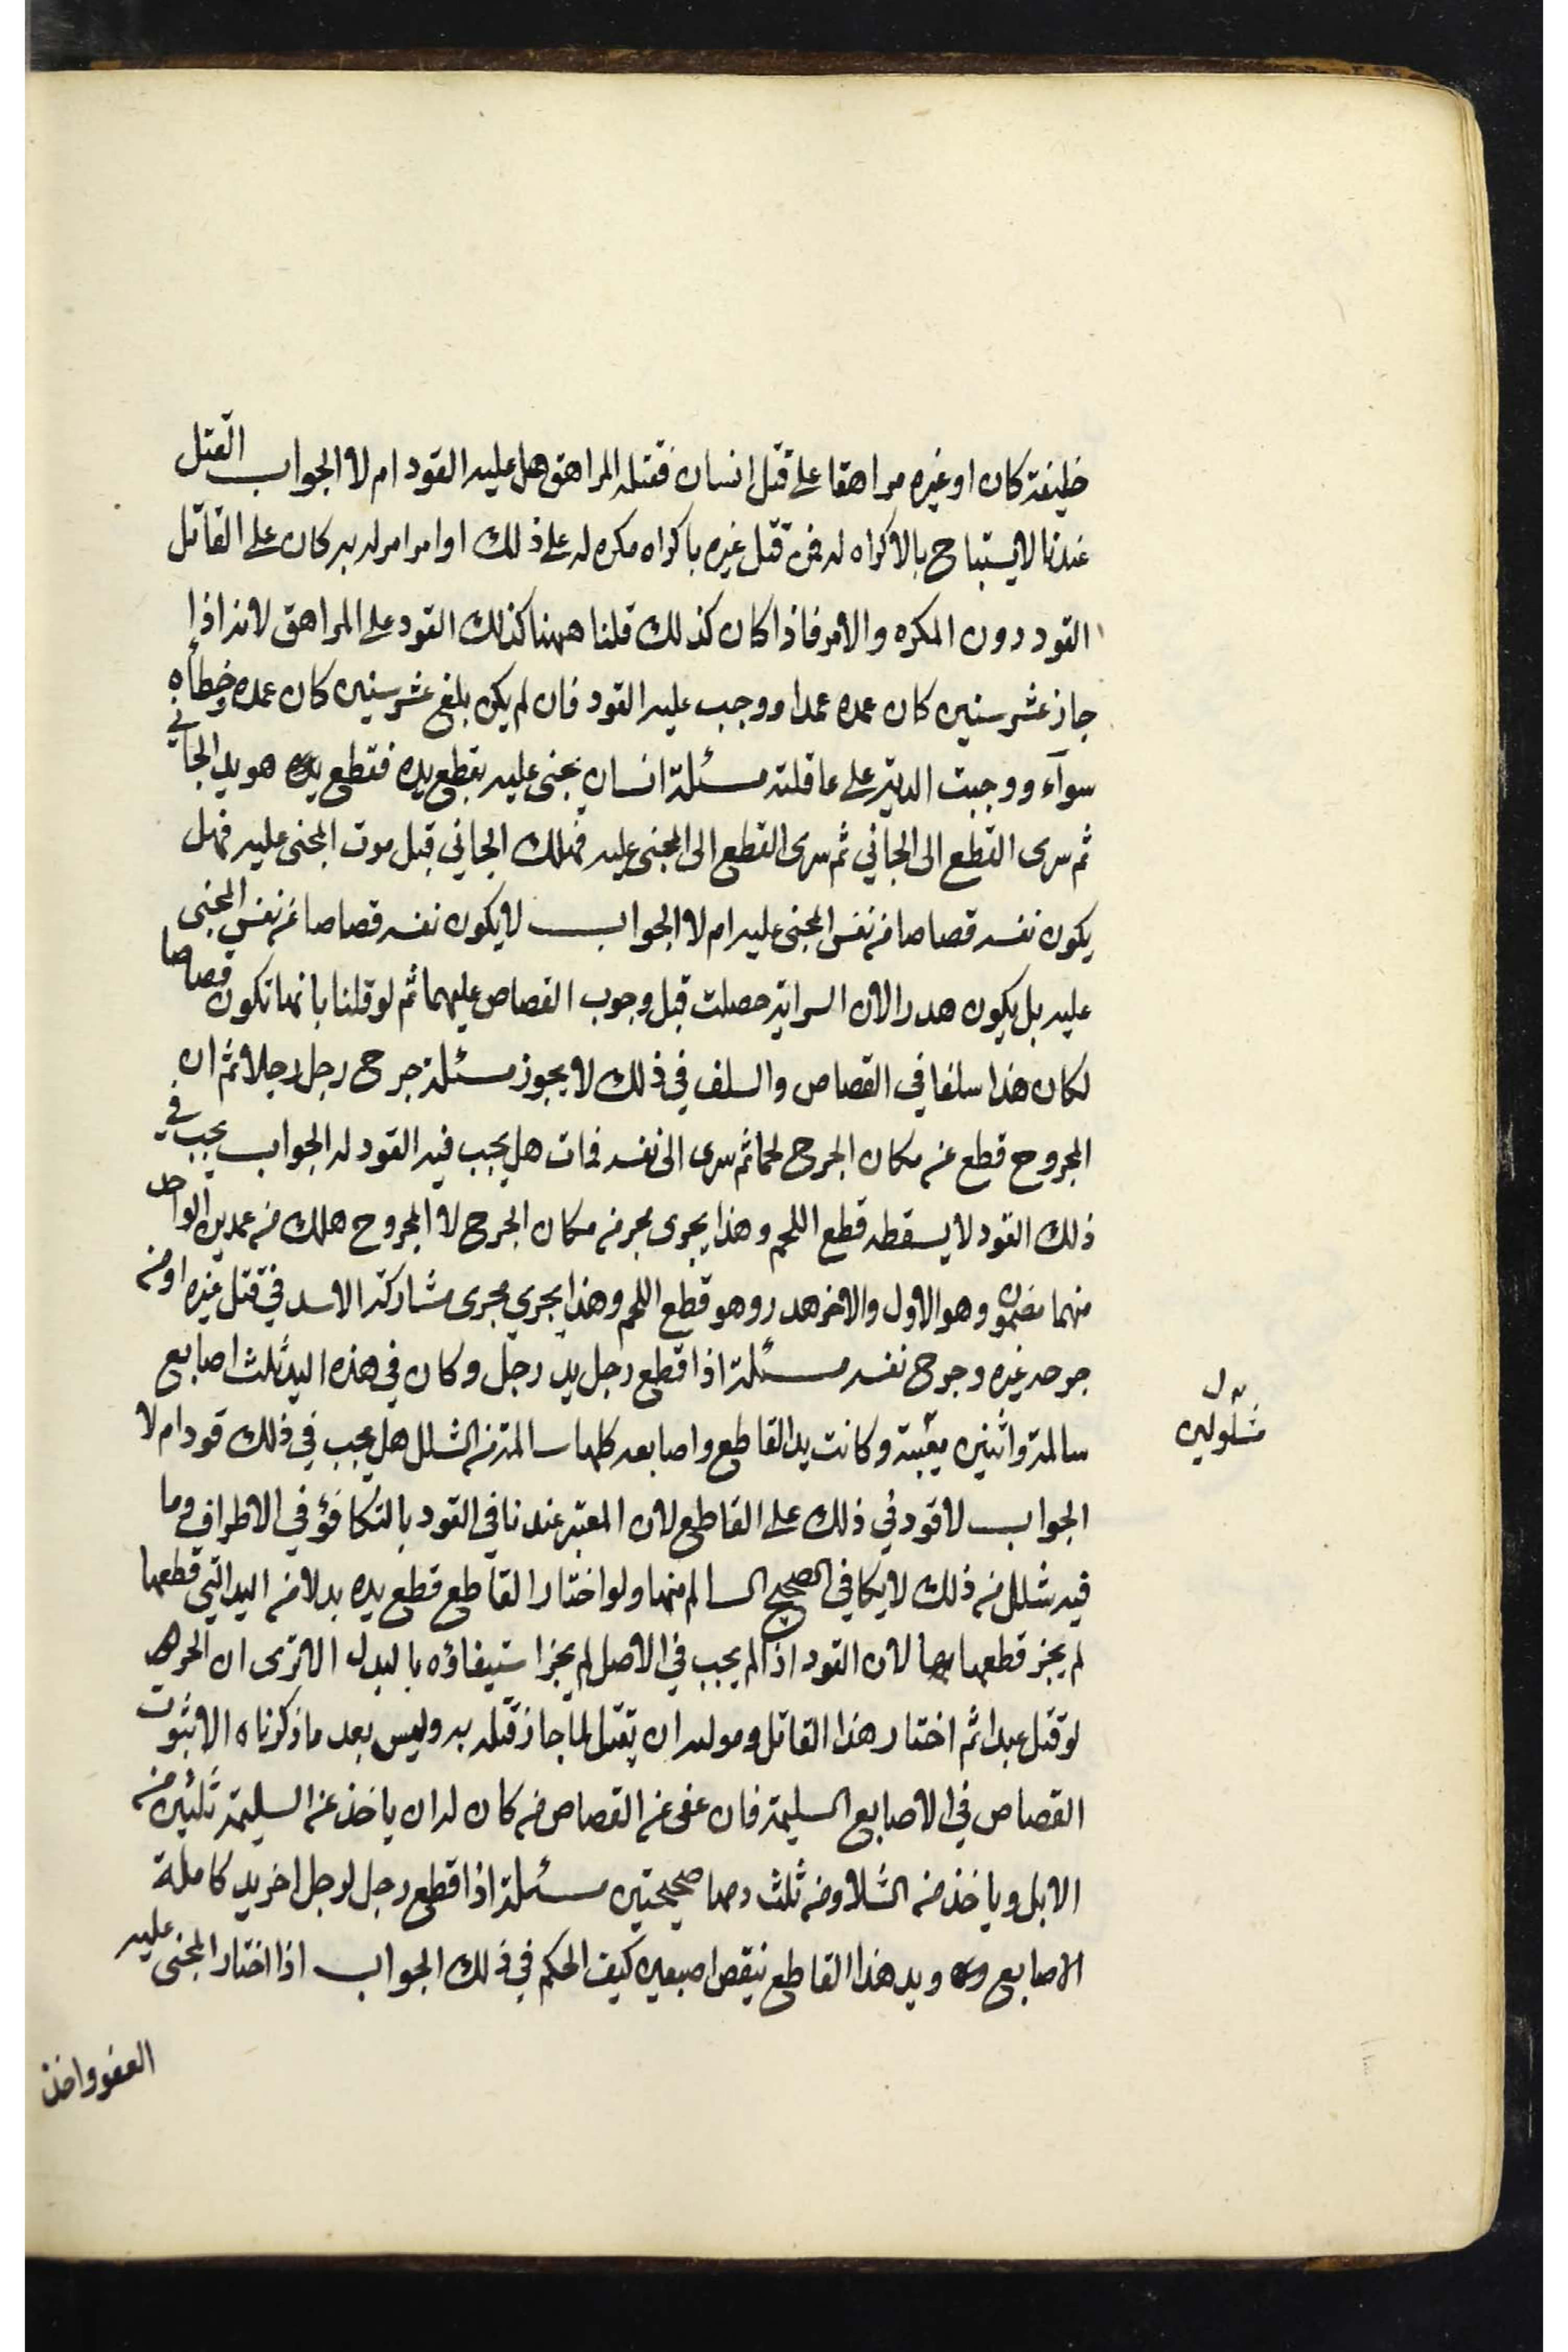 خليفة كان او غيره مراهقا على قتل انسان فقتله المراهق هل عليه القود ام لا الجواب القتل
عندنا لا يستباح بالاكراه له فمن قتل غيره باكراه مكره له على ذلك او امر امر له به كان على القاتل
القود دون المكره والامر فاذا كان كذلك قلنا ههنا كذلك القود على المراهق لانه اذا
جاز عشر سنين كان عمده عمدا ووجب عليه القود فان لم يكن بلغ عشر سنين كان عمده وخطأه
سوآء ووجبت الدية على عاقلته مسئلة انسان يجنى عليه بقطع يده فقطع هو يد الجاني
ثم سرى القطع الى الجاني ثم سرى القطع الى المجنى عليه فهلك الجاني قبل موت المجنى عليه فهل
يكون نفسه قصاصا من نفس المجنى عليه ام لا الجواب لا يكون نفسه قصاصا عن نفس المجنى
عليه بل يكون هدرا لان السراية حصلت قبل وجوب القصاص عليهما ثم لو قلنا بانها تكون قصاصا
لكان هذا سلفا في القصاص والسلف في ذلك لا يجوز مسئلة جرح رجل رجلا ثم ان
المجروح قطع من مكان الجرح لحما ثم سرى الى نفسه فمات هل يجب فيه القود له الجواب يجب في
ذلك القود لا يسقطه قطع اللحم وهذا يجرى مجر من مكان الجرح لا المجروح هلك من عمدين الواحد
منهما مضمون وهو الاول والاخر هدر وهو قطع اللحم وهذا يجري مجرى مشاركة الاسد في قتل غيره او من
جرحه غيره وجرح نفسه مسئلة اذا قطع رجل يد رجل وكان في هذه اليد ثلث اصابع
سالمة واثنين معيبة وكانت يد القاطع واصابعه كلها سالمة من الشلل هل يجب في ذلك قود ام لا
مشلولين
الجواب لا قود في ذلك على القاطع لان المعتبر عندنا في القود بالتكافؤ في الاطراف وما
فيه شلل من ذلك لا يكافي الصحيح السالم منها ولو اختار القاطع قطع يده بدلا من اليد التي قطعها
لم يجز قطعها بها لان القود اذا لم يجب في الاصل لم يجز استيفاؤه بالبدل الا ترى ان الحر
لو قتل عبدا ثم اختار هذا القاتل ومولده ان يقتل لما جاز قتله به وليس بعد ما ذكرناه الا ثبوت
القصاص في الاصابع السليمة فان عفى عن القصاص منه كان له ان ياخذ عن السليمة ثلثين من
الابل وياخذ من الشلاو من ثلث دها صحيحتين مسئلة اذا قطع رجل لرجل اخر يد كاملة
الاصابع ويد هذا القاطع ينقص اصبعين كيف الحكم في ذلك الجواب اذا اختار المجنى عليه
العفو واخذ